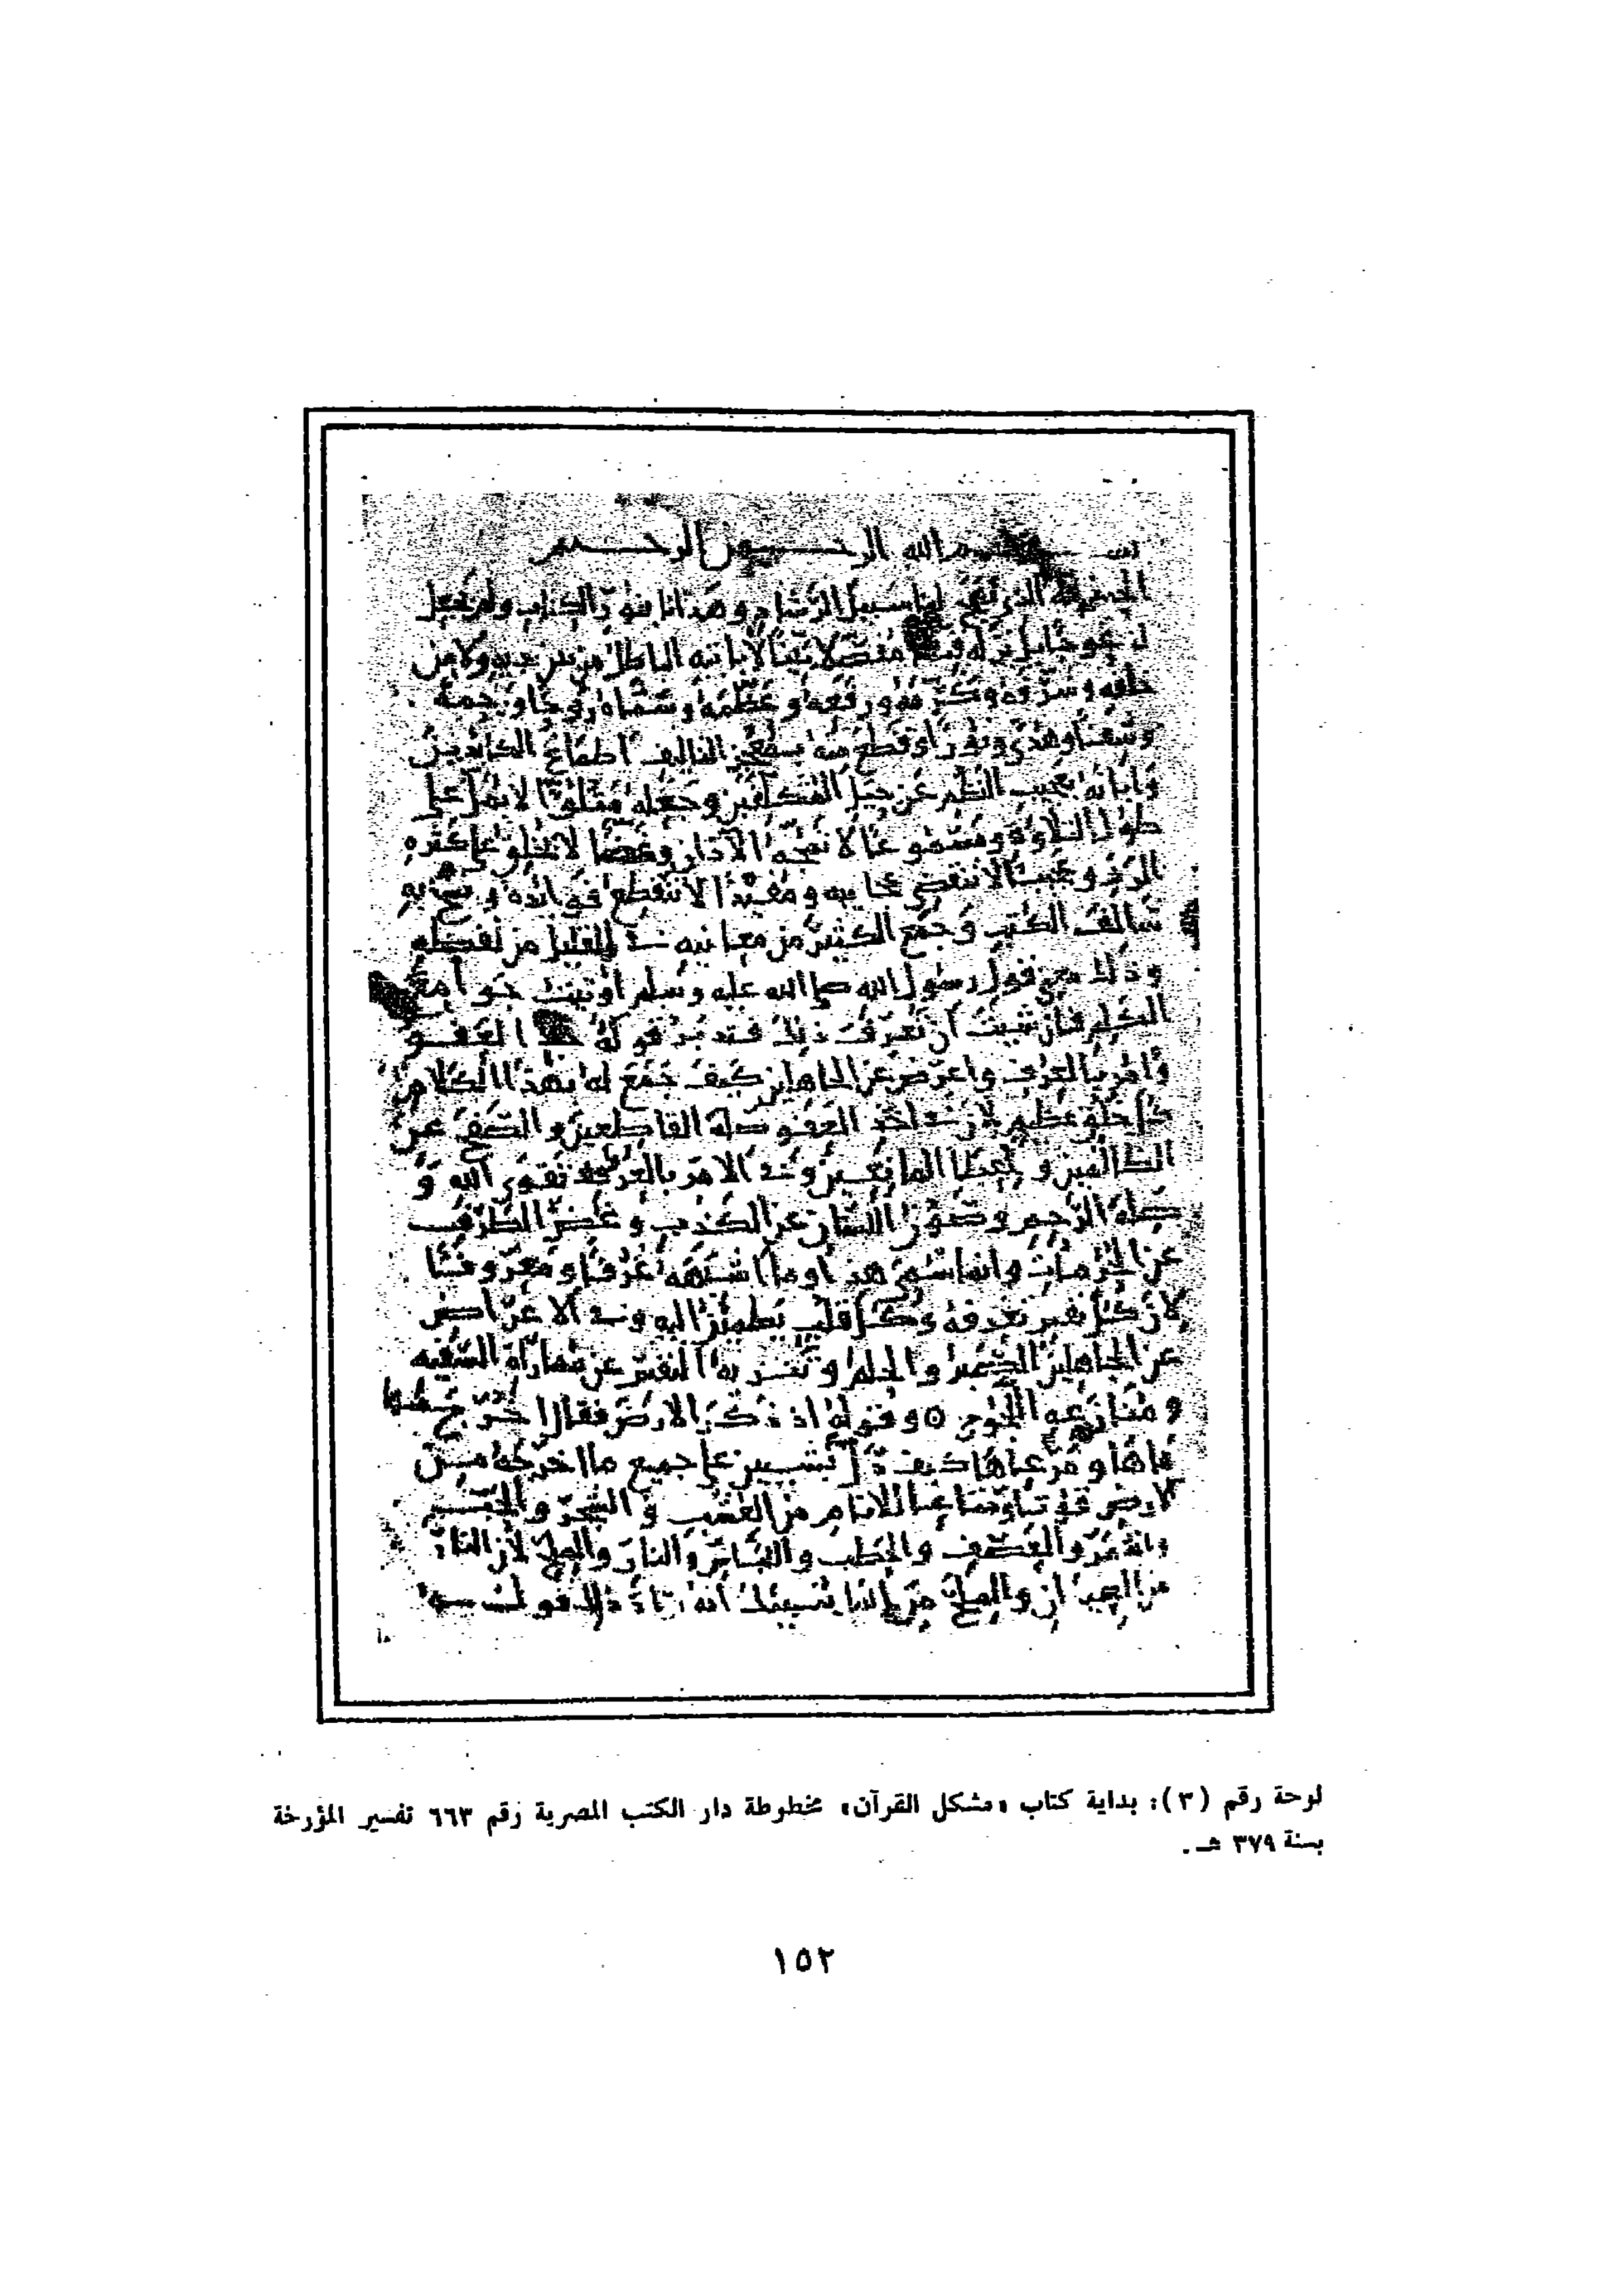 بســـم الله الرحـــمن الرحـــيم
الحمد لله الذي نهج لنا سبيل الرشاد وهدانا بنور الكتاب ولم يجعل
له عوجا بل نزله قيما مفصلا بينا لا ياتيه الباطل من بين يديه ولا من
خلفه وشرفه وكرمه ورفعه وعظمه وسماه روحا ورحمة
وشفا وهدى ونورا وقطع منه بمعجز التاليف اطماع الكايدين
وابانه بعجيب النظم عن حيل المتكلفين وجعله متلوا لا يمل على
طول التلاوة ومسموعا لا تمجه الاذان وغضا لا يخلق على كثرة
الرد وعجيبا لا تنقضي عجايبه ومفيدا لا تنقطع فوائده ونسخ به
سالف الكتب وجمع الكثير من معانيه في القليل من لفظه
وذلك معنى قول رسول الله صلى الله عليه وسلم اوتيت جوامع
الكلم فان شيت ان تعرف ذلك فتدبر قوله خذ العفو
وأمر بالعرف واعرض عن الجاهلين كيف جمع له بهذا الكلام
كل خلق عظيم لان في اخذ العفو صلة القاطعين والصفح عن
الظالمين و اعطا المانعين وفي الامر بالعرف تقوى الله و
صلة الرحم وصون اللسان عن الكذب وغض الطرف
عن الحرمات وانما سمي هذا وما اشبهه عرفا ومعروفا
لان كل نفس تعرفه وكل قلب يطمئن اليه وفي الاعراض
عن الجاهلين الصبر والحلم وتنزيه النفس عن مماراة السفيه
ومنازعة اللجوج ٥ وقوله اذ ذكر الارض فقال اخرج منها
ماها ومرعاها كيف دل بشيين على جميع ما اخرجه من
الارض قوتا ومتاعا للانام من العشب والشجر والحب
والثمر والعصف والحطب واللباس والنار والملح لان النار
من العيدان والملح من الما ينبيك انه اراد ذلك قوله
لوحة رقم (٣): بداية كتاب «مشكل القرآن» مخطوطة دار الكتب المصرية رقم ٦٦٣ تفسير المؤرخة
بسنة ٣٧٩ هـ.
١٥٢